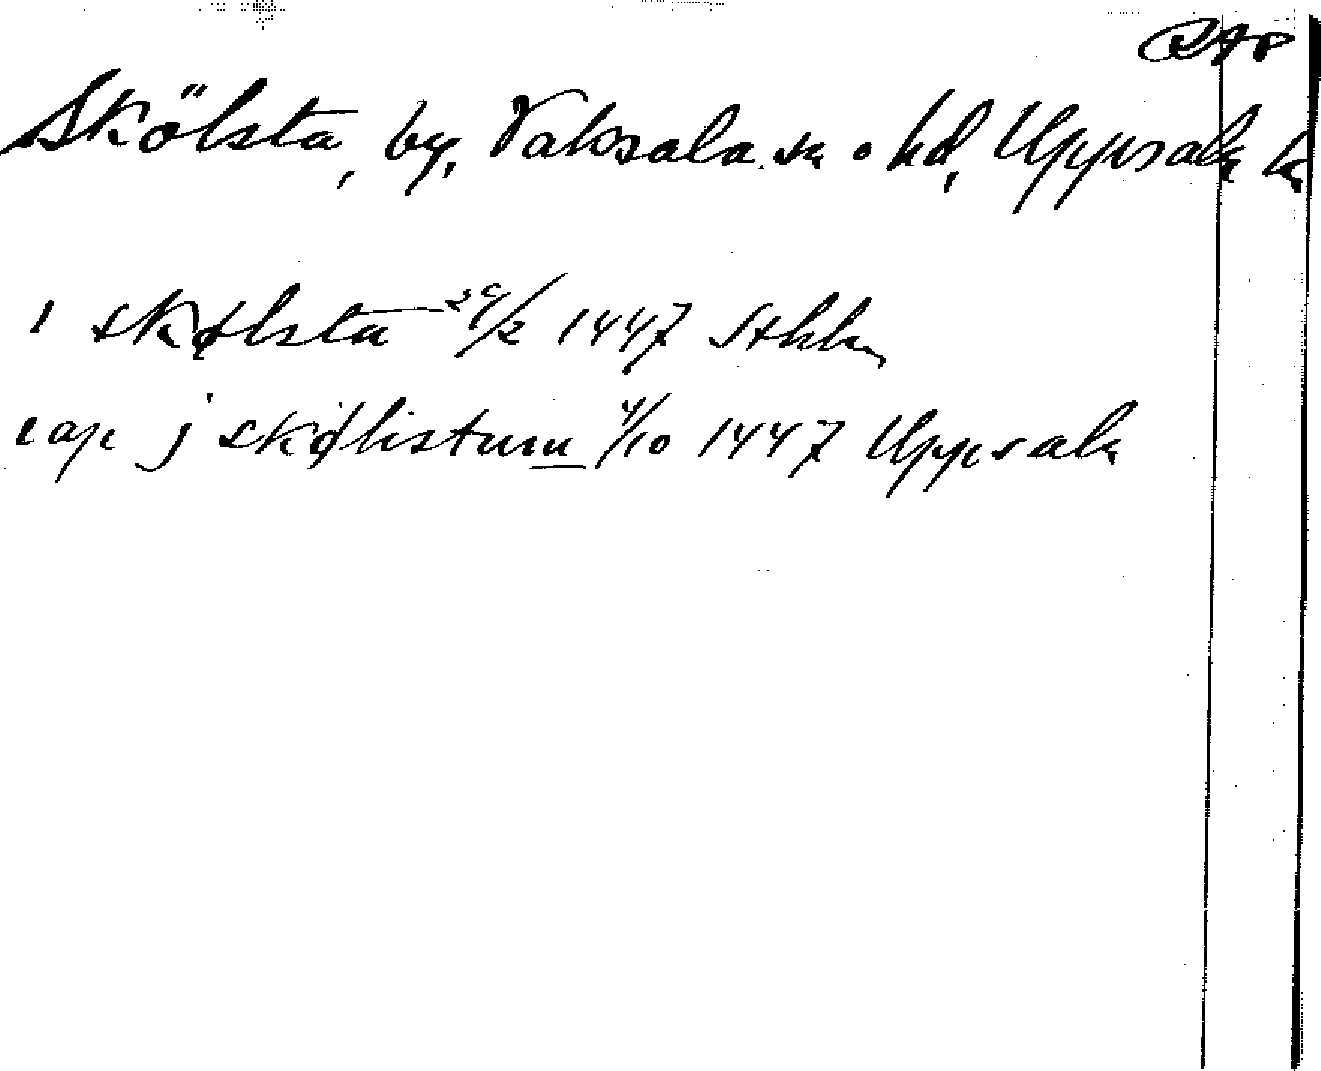 RAP
Skölsta, by, Vaksala sn o hd, Uppsala l.
i skølsta 29/2 1447 Sthlm
i j skølistum 4/10 1447 Uppsala